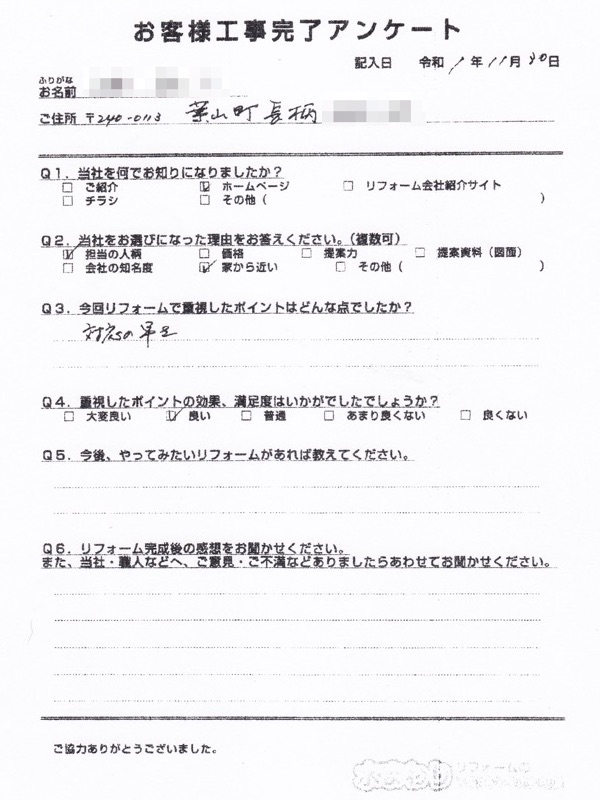 お客様工事完了アンケート
記入日　令和 1 年 11 月 30 日
ふりがな
お名前
ご住所 〒240-0113 葉山町長柄
Q1. 当社を何でお知りになりましたか?
□ ご紹介 ☑ ホームページ □ リフォーム会社紹介サイト
□ チラシ □ その他 ( )
Q2. 当社をお選びになった理由をお答えください。(複数可)
☑ 担当の人柄 □ 価格 □ 提案力 □ 提案資料 (図面)
□ 会社の知名度 ☑ 家から近い □ その他 ( )
Q3. 今回リフォームで重視したポイントはどんな点でしたか?
対応の早さ
Q4. 重視したポイントの効果、満足度はいかがでしたでしょうか?
□ 大変良い ☑ 良い □ 普通 □ あまり良くない □ 良くない
Q5. 今後、やってみたいリフォームがあれば教えてください。
Q6. リフォーム完成後の感想をお聞かせください。
また、当社・職人などへ、ご意見・ご不満などありましたらあわせてお聞かせください。
ご協力ありがとうございました。
リフォームの